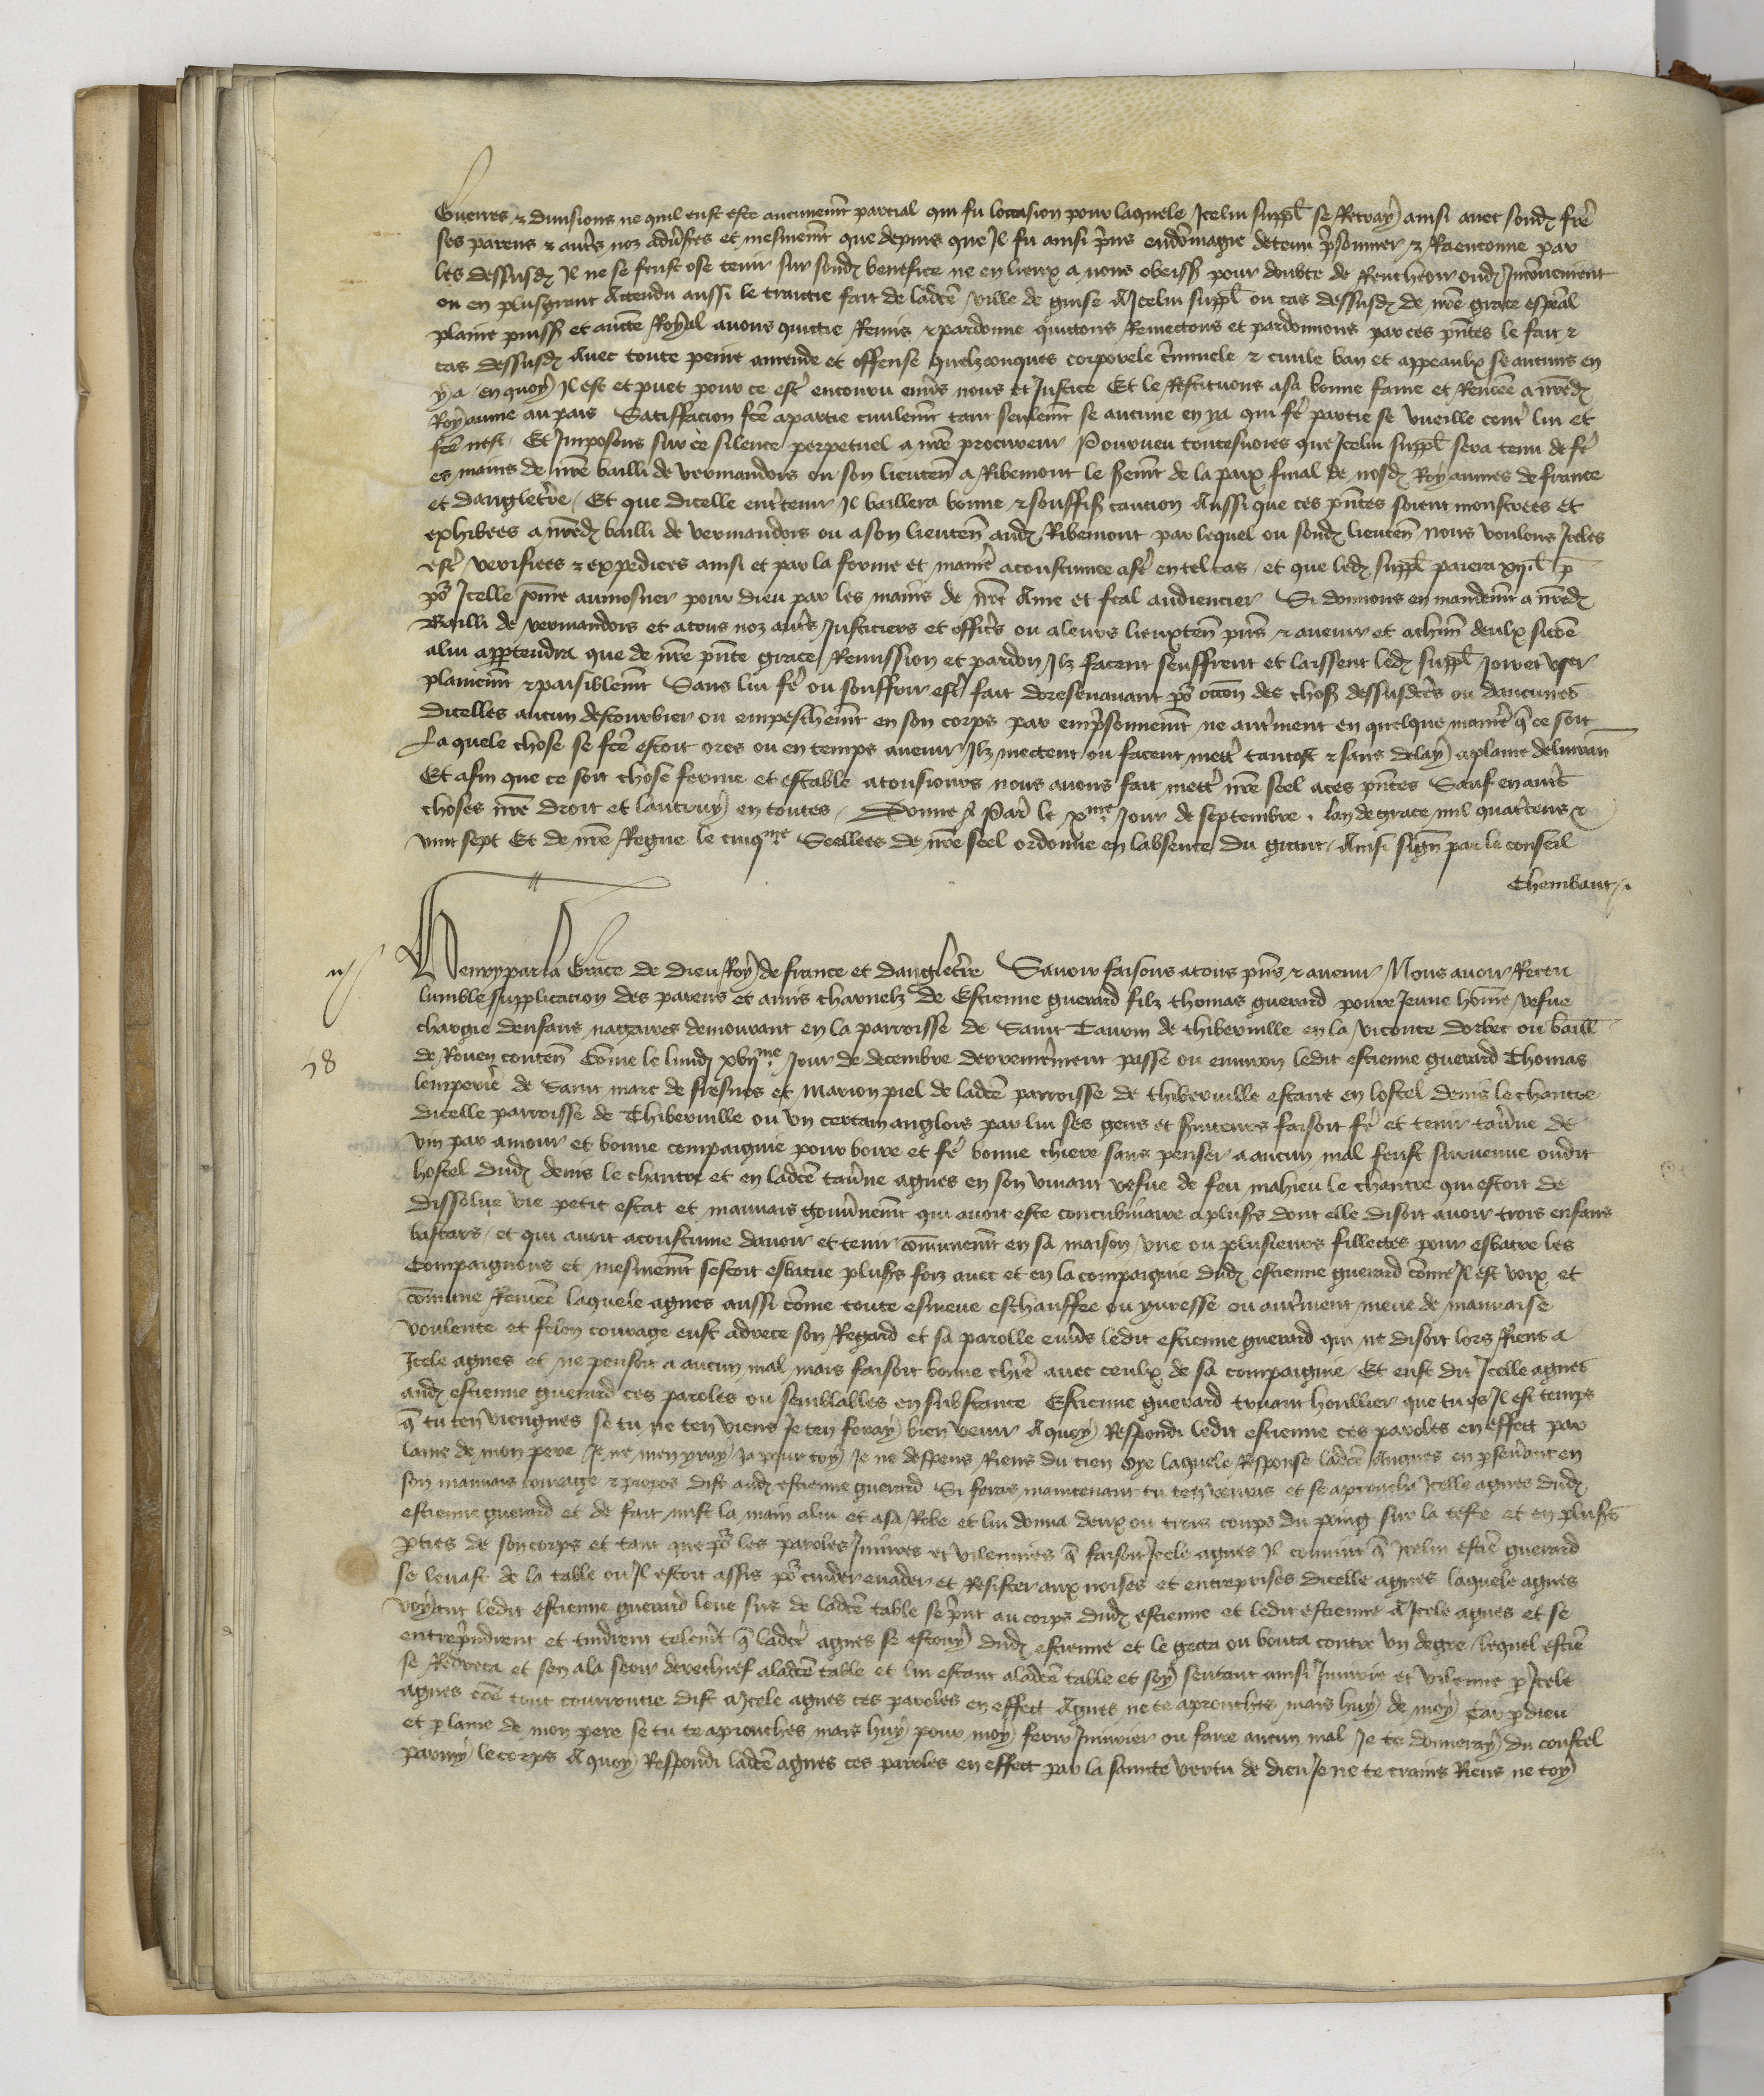 Guerres & divisions ne quil eust este aucunemt parcial qui fu loccasion pour laquele Icelui suppl se Retray ainsi avec sond frē
ses parens & autrs noz advsres et mesmemt que depuis que Il fu ainsi prins endōmagie detenu prsonnier & Raenconne par
les dessusd Il ne se feust ose tenir sur sond benefice ne en lieux a nous obeiss pour doubte de Rencheoir oud Inconvenient
ou en plusgrant Actendu aussi le traictie fait de ladcē ville de guise A Icelui suppl ou cas dessusd de nrē grace espēal
plaine puiss et aucte Royal avons quicte Remis & pardonne quictons Remectons et pardonnons par ces pntes le fait &
cas dessusd Avec toute peine amende et offense quelzconques corporele crimnele & civile ban et appeaulx se aucuns en
y a en quoy Il est et puet pour ce estr encouru envs nous et Justice Et le Restituons a sa bonne fame et Renōee a nrēd
Royaume au pais Satisffacion fcē a partie civilemt tant seulemt se aucune en ya qui fē partie se vueille contr lui et
fcē nest Et Imposons sur ce silence perpetuel a nrē procureur Pourveu toutesvoies que Icelui suppl sera tenu de fē
es mains de nrē bailli de vermandois ou son lieutēn a Ribemont le sermt de la paix final de nosd Royaumes de france
et dangletrre Et que dicelle entrtenir Il baillera bonne & souffiss caucion Aussi que ces pntes soient monstrees et
exhibees a nrēd bailli de vermandois ou a son lieutēn aud Ribemont par lequel ou sond lieutēn nous voulons Iceles
estr verifiees & expediees ainsi et par la forme et manrē acoustumee estr en tel cas et que led suppl paiera xiiii l p
por Icelle sōme aumosner pour dieu par les mains de nrē Ame et feal audiencier Si donnons en mandemt a nrēd
Bailli de vermandois et a tous noz autrs Justiciers et officrs ou a leurs lieuxtēn pns & avenir et a chun deulx sicōe
a lui appartendra que de nrē pnte grace Remission et pardon Ilz facent seuffrent et laissent led suppl Joir et user
plainemt & paisiblemt Sans lui fē ou souffrir estr fait doresenavant por occōn des choss dessusdcēs ou daucunes
dicelles aucun destourbier ou empeschemt en son corps par emprsonnemt ne autrment en quelque manrē q ce soit
Laquele chose se fcē estoit ores ou en temps avenir Ilz mectent ou facent mettr tantost & sans delay a plaine delivran
Et afin que ce soit chose ferme et estable a tousiours nous avons fait mettr nrē seel a ces pntes Sauf en autrs
choses nrē droit et lautruy en toutes Donne a Paris le xme Jour de septembre lan de grace mil quatrcens &
vint sept Et de nrē Regne le cinqme Seellees de nrē seel ordonne en labsence du grant Ainsi sign par le conseil
Thembaut
Henry par la Grace de Dieu Roy de france et dangletrre Savoir faisons a tous pns & avenir Nous avoir Receu
lumble supplicacion des parens et amis charnelz de Estienne guerard filz thomas guerard povre Jeune hōme vefve
chargie denfans nagaires demourant en la parroisse de Saint Taurin de thiberville en la viconte dorbec ou baill
de Rouen contēn Cōme le lundi xviime Jour de decembre derrenrement passe ou environ ledit estienne guerard Thomas
lemperier de Saint marc de fresnes et marion piel de ladcē parroisse de thiberville estans en lostel denis le chantre
dicelle parroisse de Thiberville ou un certain anglois par lui ses gens et serviteurs faisoit fē et tenir tavrne de
vin par amour et bonne compaignie pour boire et fē bonne chiere sans penser a aucun mal feust survenue oudit
hostel dud denis le chantre et en ladcē tavrne agnes en son vivant vefve de feu mahieu le chantre qui estoit de
dissolue vie petit estat et mauvais gouvrnemt qui avoit este concubinaire a plusrs dont elle disoit avoir trois enfans
bastars et qui avoit acoustume davoir et tenir cōmunemt en sa maison une ou plusieurs fillettes pour esbatre les
Compaignons et mesmemt sestoit esbatue plusrs foiz avec et en la compaignie dud estienne guerard cōme Il est voix et
cōmune Renōee laquele agnes aussi cōme toute esmeue eschauffee ou yvresse ou autrment meue de mauvaise
voulente et felon courage eust adrece son Regard et sa parolle envs ledit estienne guerard qui ne disoit lors Riens a
Icele agnes et ne pensoit a aucun mal mais faisoit bonne chrē avec ceulx de sa compaignie Et eust dit Icelle agnes
aud estienne guerard ces paroles ou semblables en substance Estienne guerard truant houllier que tu es Il est temps
q tu ten viengnes se tu ne ten viens Je ten feray bien venir A quoy Respondi ledit estienne ces paroles en effect par
lame de mon pere Je ne men yray Ja pour toy Je ne despens Riens du tien Oye laquele Response ladcē Angnes en psevrant en
son mauvais courage & propos dist aud estienne guerard Si feras maintenant tu ten venras et se aproucha Icelle agnes dud
estienne guerard et de fait mist la main a lui et a sa Robe et lui donna deux ou trois coups du poing sur la teste et en plusrs
pties de son corps et tant que por les paroles Injures et vilennies q faisoit Icele agnes Il convint q Icelui estiē guerard
se levast de la table ou Il estoit assis por cuider evader et Resister aux noises et entreprises dicelle agnes laquele agnes
voyant ledit estienne guerard leve sus de ladcē table se print au corps dud estienne et ledit estienne A Icele agnes et se
entreprindrent et tindrent telemt q ladcē agnes se escouy dud estienne et le gecta ou bouta contre un degre lequel estiē
se Redreca et sen ala seoir derechief a ladcē table et lui estant a ladcē table et soy sentant ainsi Injurie et vilenne p Icele
agnes cōe tout courroucie dist a Icele agnes ces paroles en effect Agnes ne te aprouches mais huy de moy Car p dieu
et p lame de mon pere se tu te aprouches mais huy pour moy ferir Injurier ou faire aucun mal Je te donneray du coustel
parmy le corps A quoy Respondi ladcē agnes ces paroles en effect par la sainte vertu de dieu Je ne te crains Riens ne toy